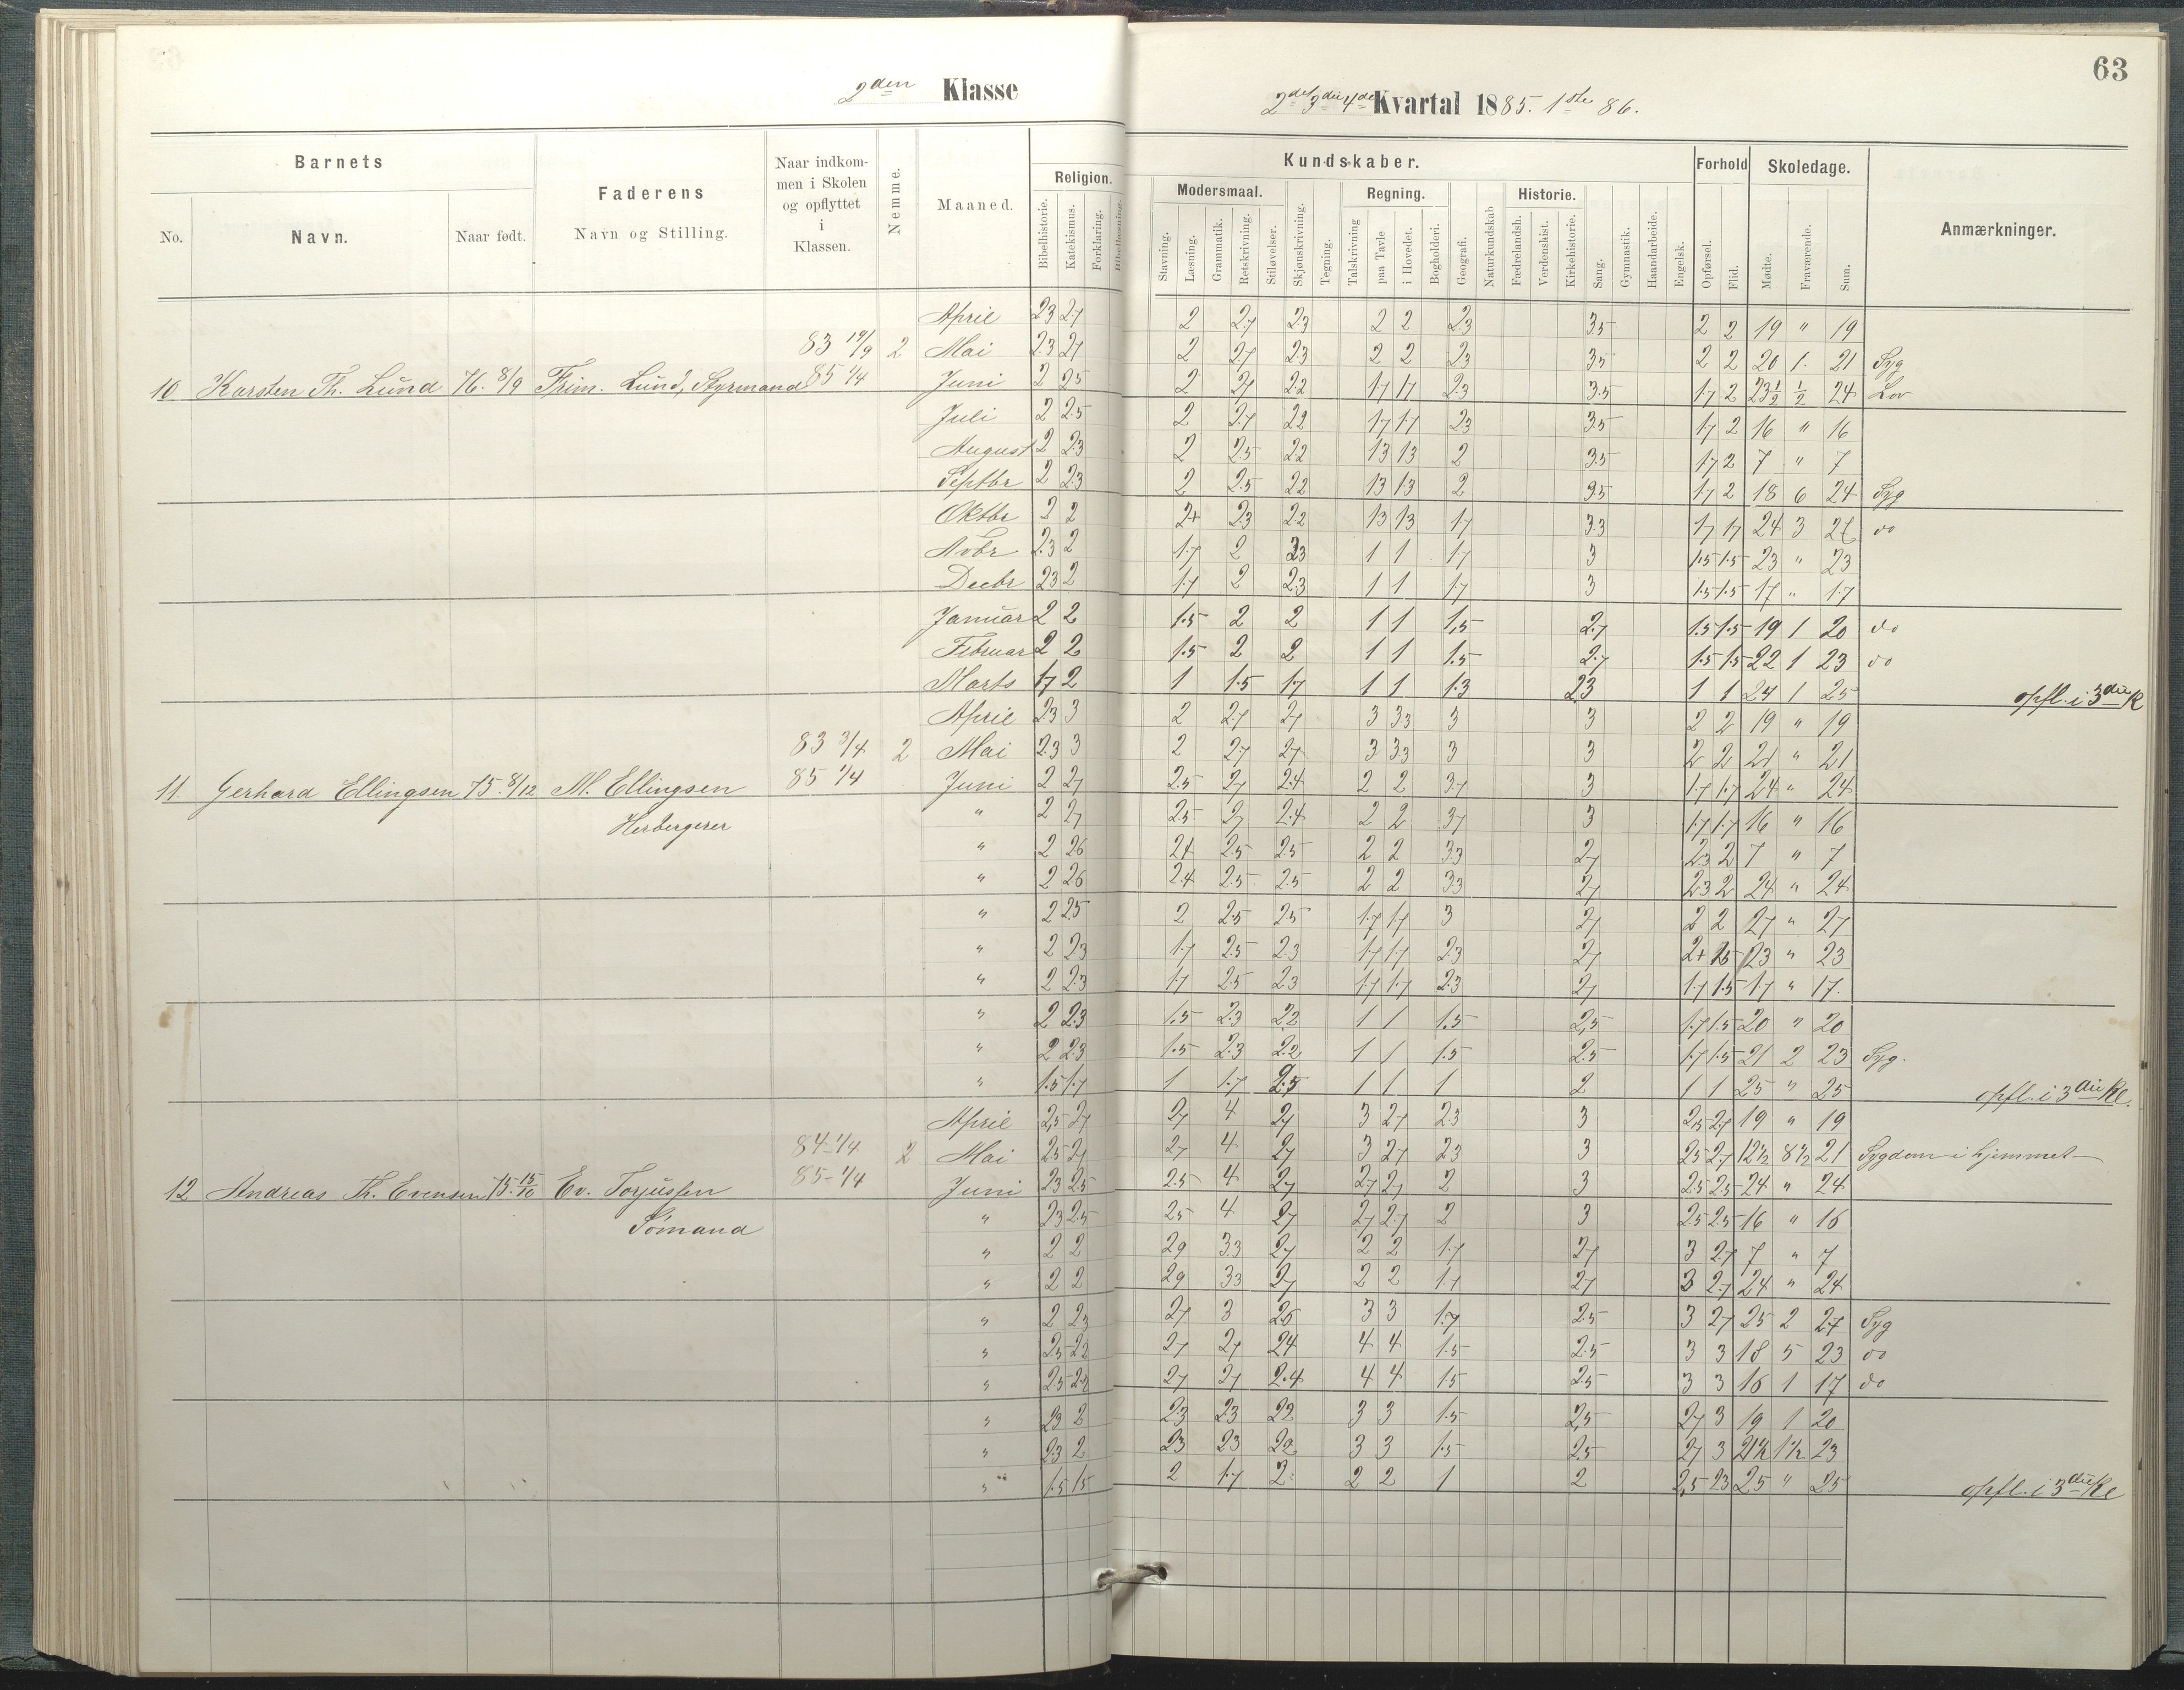 63
2den Klasse
2det 3die 4de Kvartal 1885. 1ste 86.
Barnets
No.
Navn.
Naar født.
Faderens
Navn og Stilling.
Naar indkom-
men i Skolen
og opflyttet
i
Klassen.
Nemme.
Maaned.
Kundskaber.
Religion.
Bibelhistorie.
Katekismus.
Forklaring.
Bibellæsning.
Modersmaal.
Stavning.
Læsning.
Grammatik.
Retskrivning.
Stiløvelser.
Skjønskrivning.
Tegning.
Regning.
Talskrivning
paa Tavle
i Hovedet.
Bogholderi.
Geografi.
Naturkundskab
Historie.
Fædrelandsh.
Verdenshist.
Kirkehistorie.
Sang.
Gymnastik.
Haandarbeide.
Engelsk.
Forhold
Opførsel.
Flid.
Skoledage.
Mødte.
Fraværende.
Sum.
Anmærkninger.
April 2.3 2.7 2 2.7 2.3 2 2 2.3 3.5 2 2 19 " 19
83 19/9 2 Mai 2.3 2.7 2 2.7 2.3 2 2 2.3 3.5 2 2 20 1. 21 Syg
10 Karsten Th. Lund 76. 8/9 Frim. Lund, Styrmand 85 1/4 Juni 2 2.5 2 2.7 2.2 1.7 1.7 2.3 3.5 1.7 2 23 1/2 1/2 24 Lov
Juli 2 2.5 2 2.7 2.2 1.7 1.7 2.3 3.5 1.7 2 16 " 16
August 2 2.3 2 2.5 2.2 1.3 1.3 2 3.5 1.7 2 7 " 7
Septbr 2 2.3 2 2.5 2.2 1.3 1.3 2 3.5 1.7 2 18 6 24 Syg
Oktbr 2 2 2+ 2.3 2.2 1.3 1.3 1.7 3.3 1.7 1.7 24 3 do
Novbr 2.3 2 1.7 2 2.3 1 1 1.7 3 1.5 1.5 23 " 23
Decbr 2.3 2 1.7 2 2.3 1 1 1.7 3 1.5 1.5 17 " 17
Januar 2 2 1.5 2 2 1 1 1.5 2.7 1.5 1.5 19 1 20 do
Februar 2 2 1.5 2 2 1 1 1.5 2.7 1.5 1.5 22 1 23 do
Marts 1.7 2 1 1.5 1.7 1 1 1.3 2.3 1 1 24 1 25 opfl. i 3die K
April 2.3 3 2 2.7 2.7 3 3.3 3 3 2 2 19 " 19
83 3/4 2 Mai 2.3 3 2 2.7 2.7 3 3.3 3 3 2 2 21 " 21
11. Gerhard Ellingsen 75. 8/12 M. Ellingsen 85 1/4 Juni 2 2.7 2.5 2.7 2.4 2 2 3.7 3 1.7 1.7 24 " 24
Herbergerer " 2 2.7 2.5 2.7 2.4 2 2 3.7 3 1.7 1.7 16 " 16
" 2 2.6 2.4 2.5 2.5 2 2 3.3 2.7 2.3 2 7 " 7
" 2 2.6 2.4 2.5 2.5 2 2 3.3 2.7 2.3 2 24 " 24
" 2 2.5 2 2.5 2.5 1.7 1.7 3 2.7 2 2 27 " 27
" 2 2.3 1.7 2.5 2.3 1.7 1.7 2.3 2.7 2+ 1.5 23 " 23
" 2 2.3 1.7 2.5 2.3 1.7 1.7 2.3 2.7 1.7 1.5 17 " 17.
" 2 2.3 1.5 2.3 2.2 1 1 1.5 2.5 1.7 1.5 20 " 20
" 2 2.3 1.5 2.3 2.2 1 1 1.5 2.5 1.7 1.5 21 2 23 Syg.
" 1.5 1.7 1 1.7 2.5 1 1 1 2 1 1 25 " 25 opfl. i 3die Kl.
April 2.5 2.7 2.7 4 2.7 3 2.7 2.3 3 2.5 2.7 19 " 19
84 1/4 2 Mai 2.5 2.7 2.7 4 2.7 3 2.7 2.3 3 2.5 2.7 12 1/2 8 1/2 21 Sygdom i hjemmet
12 Andreas Th. Evensen 75. 15/10 Ev. Torjussen 85 1/4 Juni 2.3 2.5 2.5 4 2.7 2.7 2.7 2 3 2.5 2.5 24 " 24
Sømand " 2.3 2.5 2.5 4 2.7 2.7 2.7 2 3 2.5 2.5 16 " 16
" 2 2 2.9 3.3 2.7 2 2 1.7 2.7 3 2.7 7 " 7
" 2 2 2.9 3.3 2.7 2 2 1.7 2.7 3 2.7 24 " 24
" 2 2.3 2.7 3 2.6 3 3 1.7 2.5 3 2.7 25 2 27 Syg
" 2.5 2.2 2.7 2.7 2.4 4 4 1.5 2.5 3 3 18 5 23 do
" 2.5 2.2 2.7 2.7 2.4 4 4 1.5 2.5 3 3 16 1 17 do
" 2.3 2 2.3 2.3 2.2 3 3 1.5 2.5 2.7 3 19 1 20
" 2.3 2 2.3 2.3 2.2 3 3 1.5 2.5 2.7 3 21 1/2 1 1/2 23
" 1.5 1.5 2 1.7 2 2 2 1 2 2.5 2.3 25 " 25 opfl. i 3die Kl